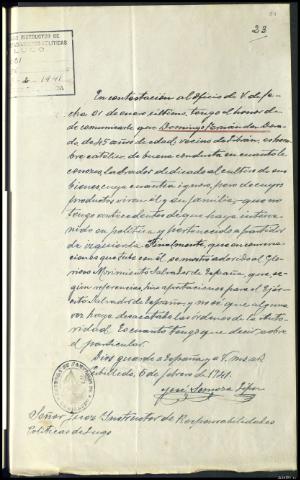 23
JUZGADO INSTRUCTOR DE
RESPONSABILIDADES POLITICAS
LUGO
1941
En contestación al oficio de V. de fe-
cha 31 de enero último, tengo el honor de
comunicarle que Domingo Fernández
de 45 años de edad, vecino de
bre católico, de buena conducta en cuanto le
conozco, labrador dedicado al cultivo de sus
bienes cuya cuantía ignoro, pero de cuyos
productos viven el y su familia, que no
tengo antecedentes de que haya interve-
nido en política y perteneciese a partidos
de izquierda. Finalmente, que en conversa-
ciones que tuve con él, se mostró adicto al Glo-
rioso Movimiento Salvador de España, que, se-
gún referencias, hizo aportaciones para el Ejér-
cito Salvador de España y no sé que alguna
vez haya desacatado las órdenes de la Auto-
ridad. Es cuanto tengo que decir sobre
el particular.
Dios guarde a España y a V. ms. as.
6 de febrero de 1941.
José
Señor Juez Instructor de Responsabilidades
Políticas de Lugo